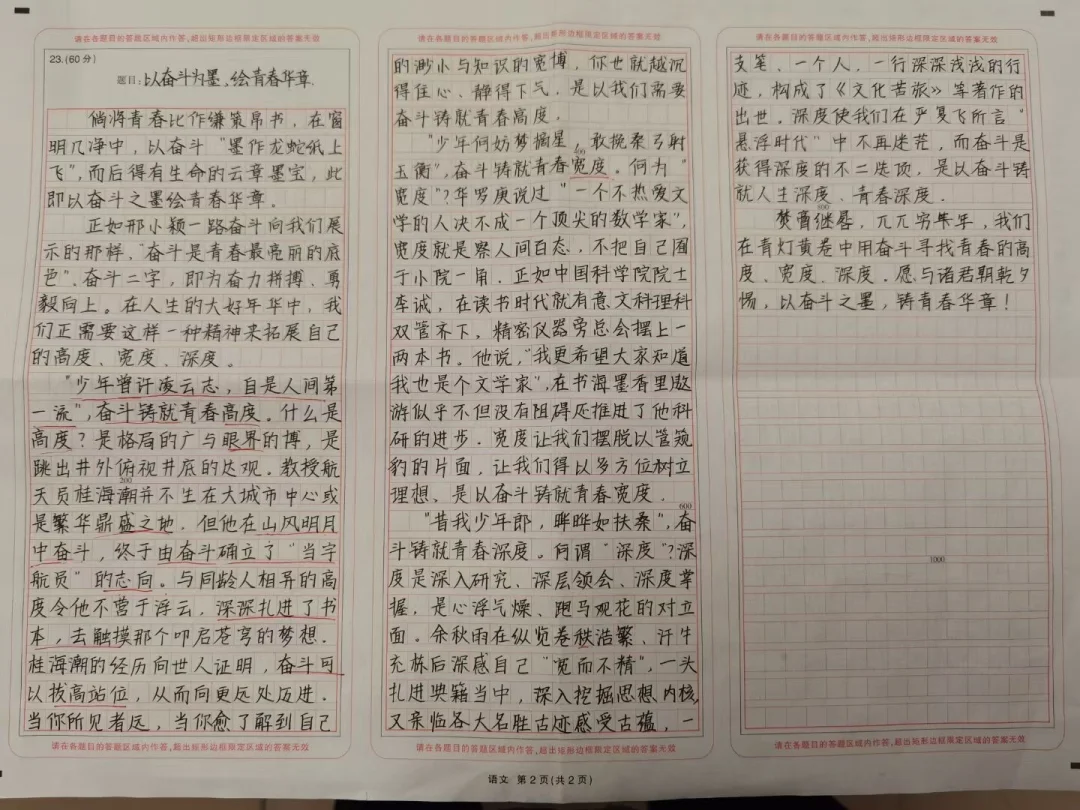 请在各题目的答题区域内作答,超出矩形边框限定区域的答案无效
23.(60分)
题目:以奋斗为墨、绘青春华章.
倘将青春比作缣策帛书，在窗
明几净中，以奋斗“墨作龙蛇纸上
飞”，而后得有生命的云章墨宝，此
即以奋斗之墨绘青春华章。
正如邢小颖一路奋斗向我们展
示的那样，“奋斗是青春最亮丽的底
色”、奋斗二字，即为奋力拼搏、勇
毅向上。在人生的大好年华中，我
们正需要这样一种精神来拓展自己
的高度、宽度、深度。
“少年曾许凌云志，自是人间第
一流”，奋斗铸就青春高度。什么是
高度？是格局的广与眼界的博，是
跳出井外俯视井底的达观。教授航
200
天员桂海潮并不生在大城市中心或
是繁华鼎盛之地．但他在山风明月
中奋斗，终于由奋斗确立了“当宇
航员”的志向。与同龄人相异的高
度令他不营于浮云，深深扎进了书
本，去触摸那个叩启苍穹的梦想．
桂海潮的经历向世人证明，奋斗可
以拔高站位，从而向更远处历进．
当你所见者远，当你愈了解到自己
请在各题目的答题区域内作答,超出矩形边框限定区域的答案无效
请在各题目的答题区域内作答,超出矩形边框限定区域的答案无效
的渺小与知识的宽博，你也就越沉
得住心、静得下气．是以我们需要
奋斗铸就青春高度．
“少年何妨梦摘星，敢挽桑弓射
玉衡”，奋斗铸就青春宽度。何为“
宽度”？华罗庚说过“一个不热爱文
学的人决不成一个顶尖的数学家”，
宽度就是察人间百态．不把自己囿
于小院一角．正如中国科学院院士
李诚，在读书时代就有意文科理科
双管齐下，精密仪器旁总会摆上一
两本书。他说，“我更希望大家知道
我也是个文学家”，在书海墨香里遨
游似乎不但没有阻碍还推进了他科
研的进步．宽度让我们摆脱以管窥
豹的片面，让我们得以多方位树立
理想．是以奋斗铸就青春宽度．
600
“昔我少年郎，晔晔如扶桑”，奋
斗铸就青春深度。何谓“深度”？深
度是深入研究、深层领会、深度掌
握，是心浮气燥、跑马观花的对立
面。余秋雨在纵览卷秩浩繁、汗牛
充栋后深感自己“宽而不精”，一头
扎进典籍当中，深入挖掘思想内核，
又亲临各大名胜古迹感受古蕴，一
请在各题目的答题区域内作答,超出矩形边框限定区域的答案无效
语文 第2页(共2页)
请在各题目的答题区域内作答,超出矩形边框限定区域的答案无效
支笔、一个人，一行深深浅浅的行
迹，构成了《文化苦旅》等著作的
出世。深度使我们在严复飞所言“
悬浮时代”中不再迷茫，而奋斗是
获得深度的不二选项，是以奋斗铸
就人生深度、青春深度．
800
焚膏继晷，兀兀穷年，我们
在青灯黄卷中用奋斗寻找青春的高
度、宽度、深度．愿与诸君朝乾夕
惕，以奋斗之墨，铸青春华章！
1000
请在各题目的答题区域内作答,超出矩形边框限定区域的答案无效